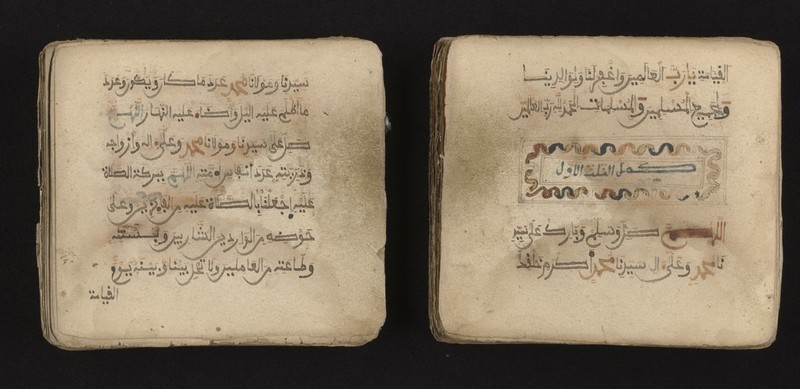 سيدنا ومولانا محمد عدد ما كان ويكون وعدد
ما اظلم عليه اليل واضاء عليه النهار اللهم
صل على سيدنا ومولانا محمد وعلى اله وازواجه
وذريته عدد انفاس امته اللهم ببركة الصلاة
عليه اجعلنا بالصلاة عليه من الفائزين وعلى
حوضه من الواردين الشاربين وبسنته
وطاعته من العاملين ولا تحل بيننا وبينه يوم
القيامة
القيامة يا رب العالمين واغفر لنا ولوالدينا
ولجميع المسلمين والمسلمات الحمد لله رب العالمين
كمل الثلث الاول
اللهم صل وسلم وبارك على سيد
نا محمد وعلى ال سيدنا محمد اكرم خلقك